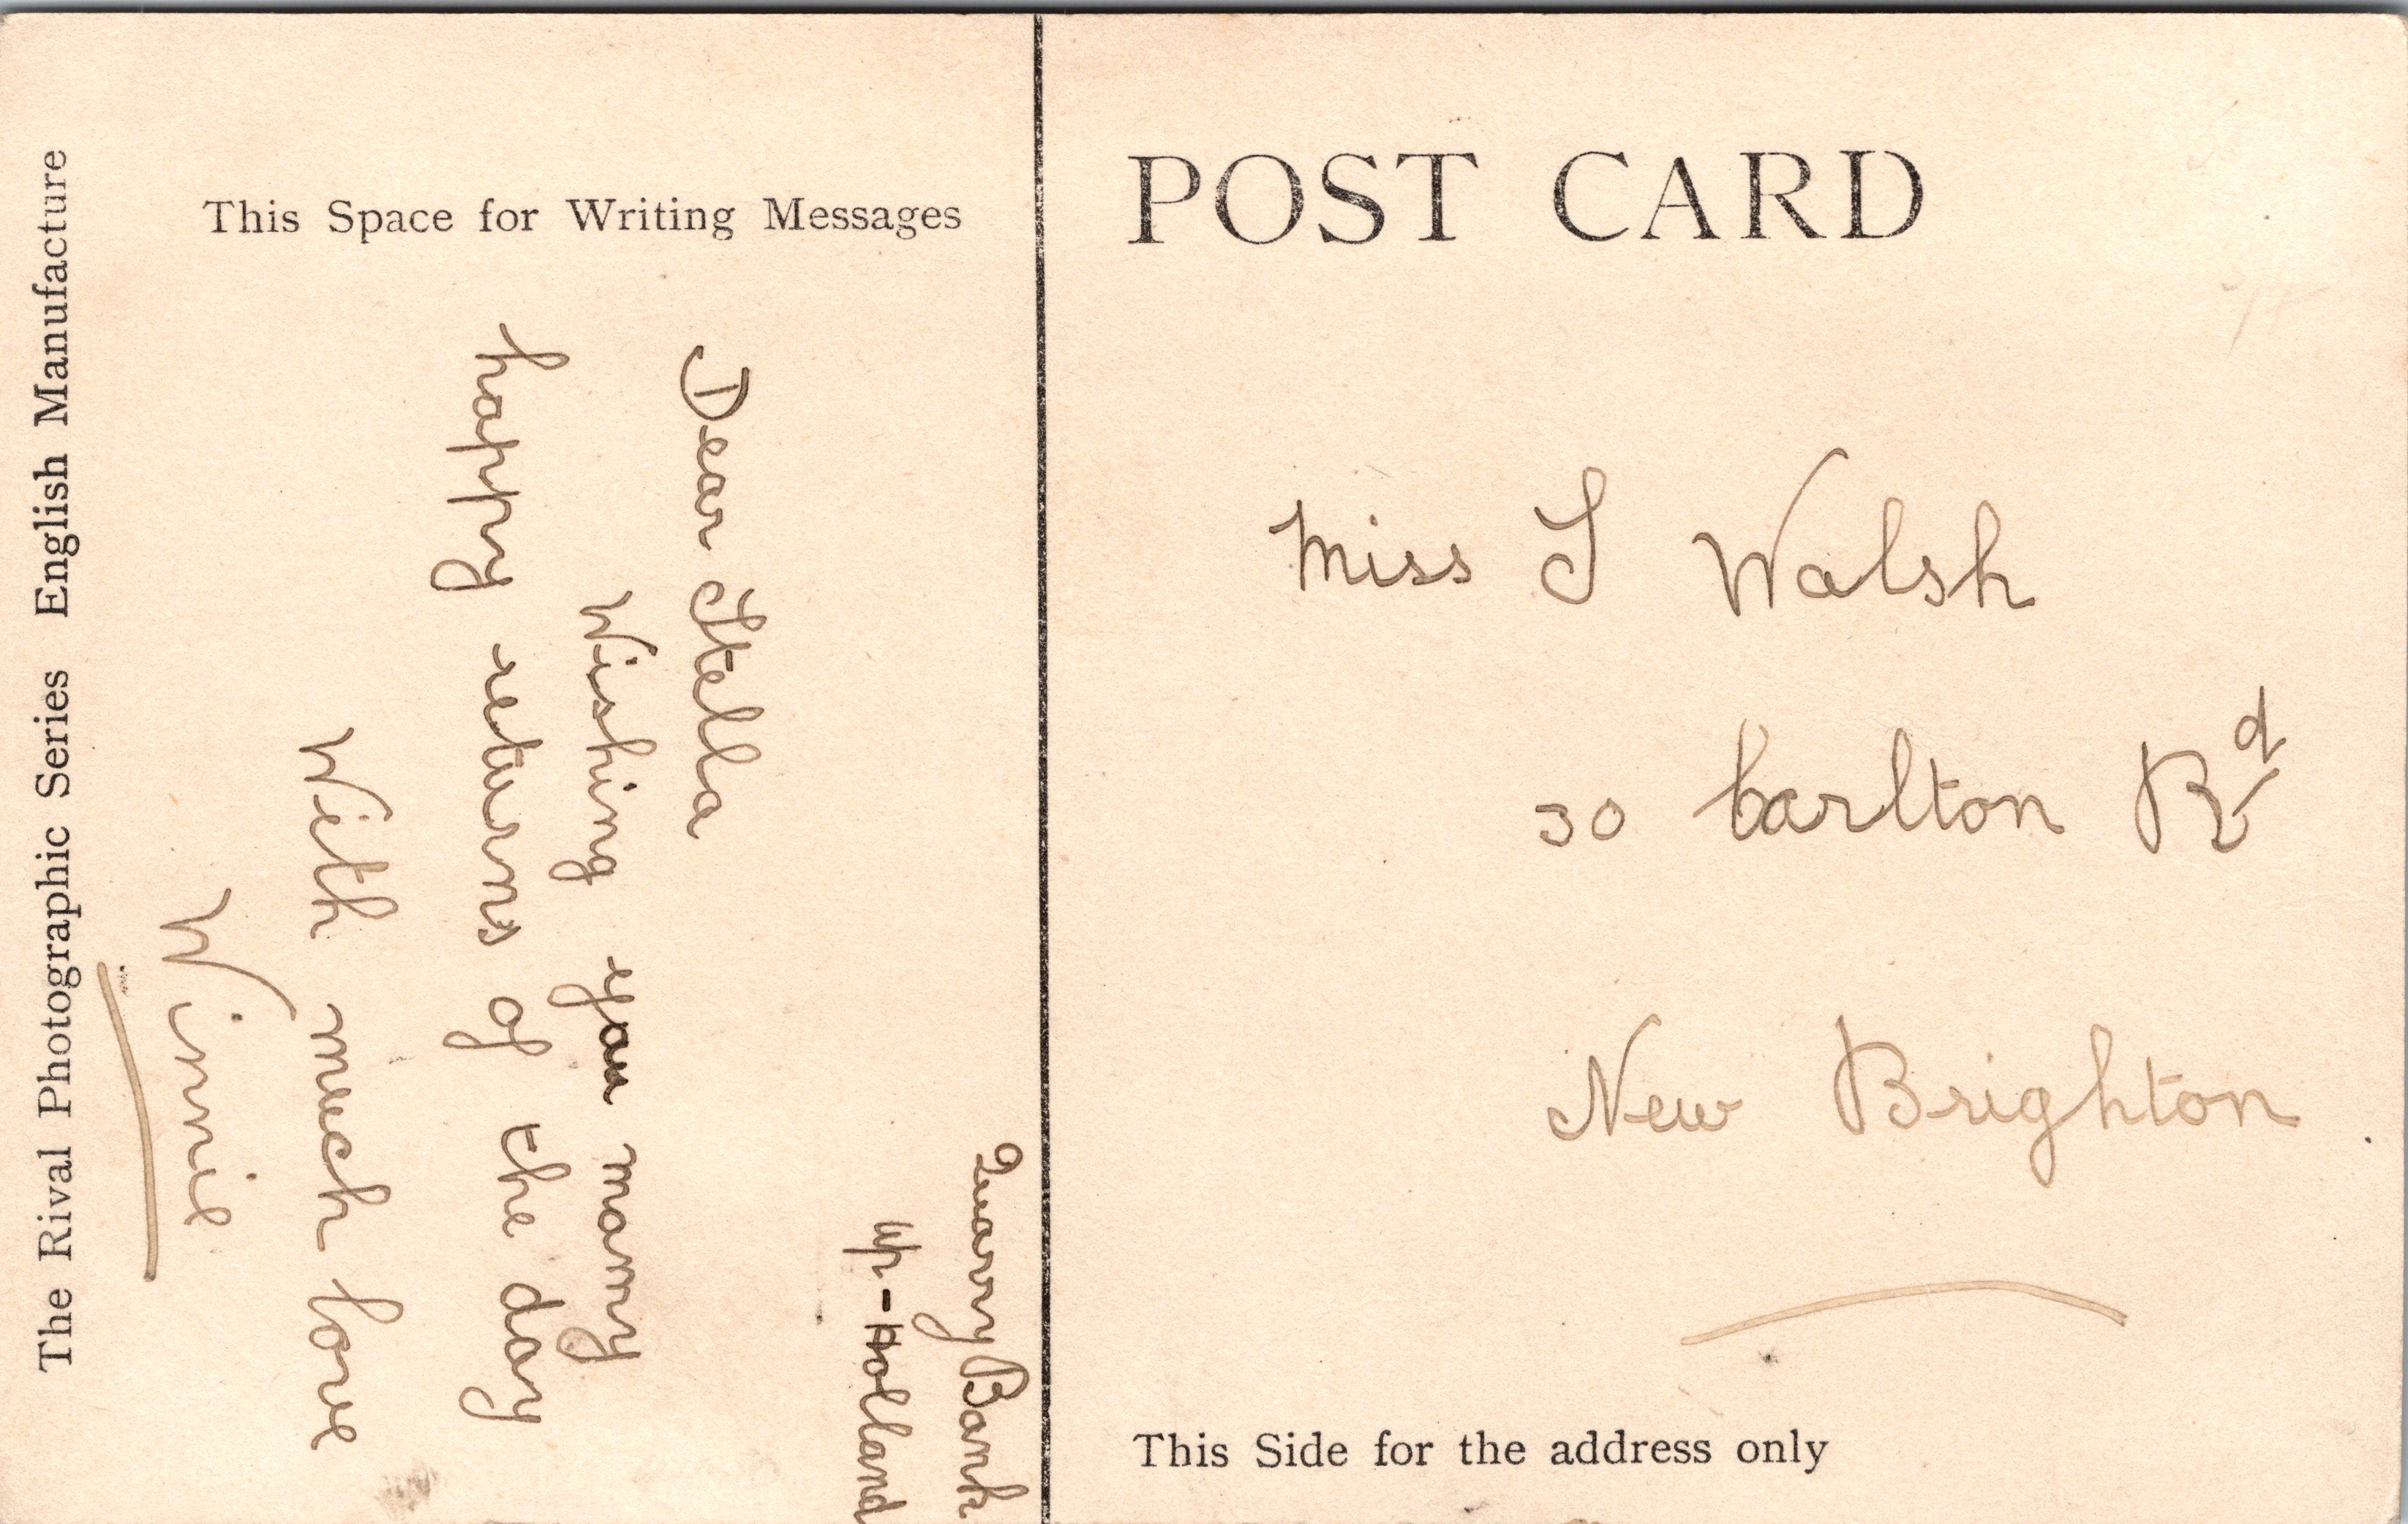 The Rival Photographic Series English Manufacture
This Space for Writing Messages
Quarry Bank
Up-Holland
Dear Stella
Wishing you many
happy returns of the day
With much love
Winnie
POST CARD
Miss S Walsh
30 Carlton Rd
New Brighton
This Side for the address only